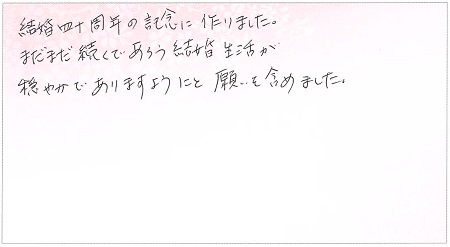 結婚四十周年の記念に作りました。
まだまだ続くであろう結婚生活が
穏やかでありますようにと願いを含めました。